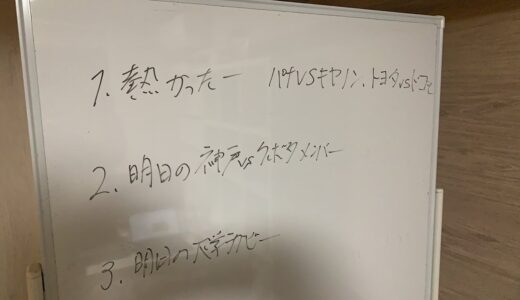 1. 熱かったー パナVSキヤノン、トヨタvsドコモ
2. 明日の神戸vsクボタメンバー
3. 明日の大学ラグビー